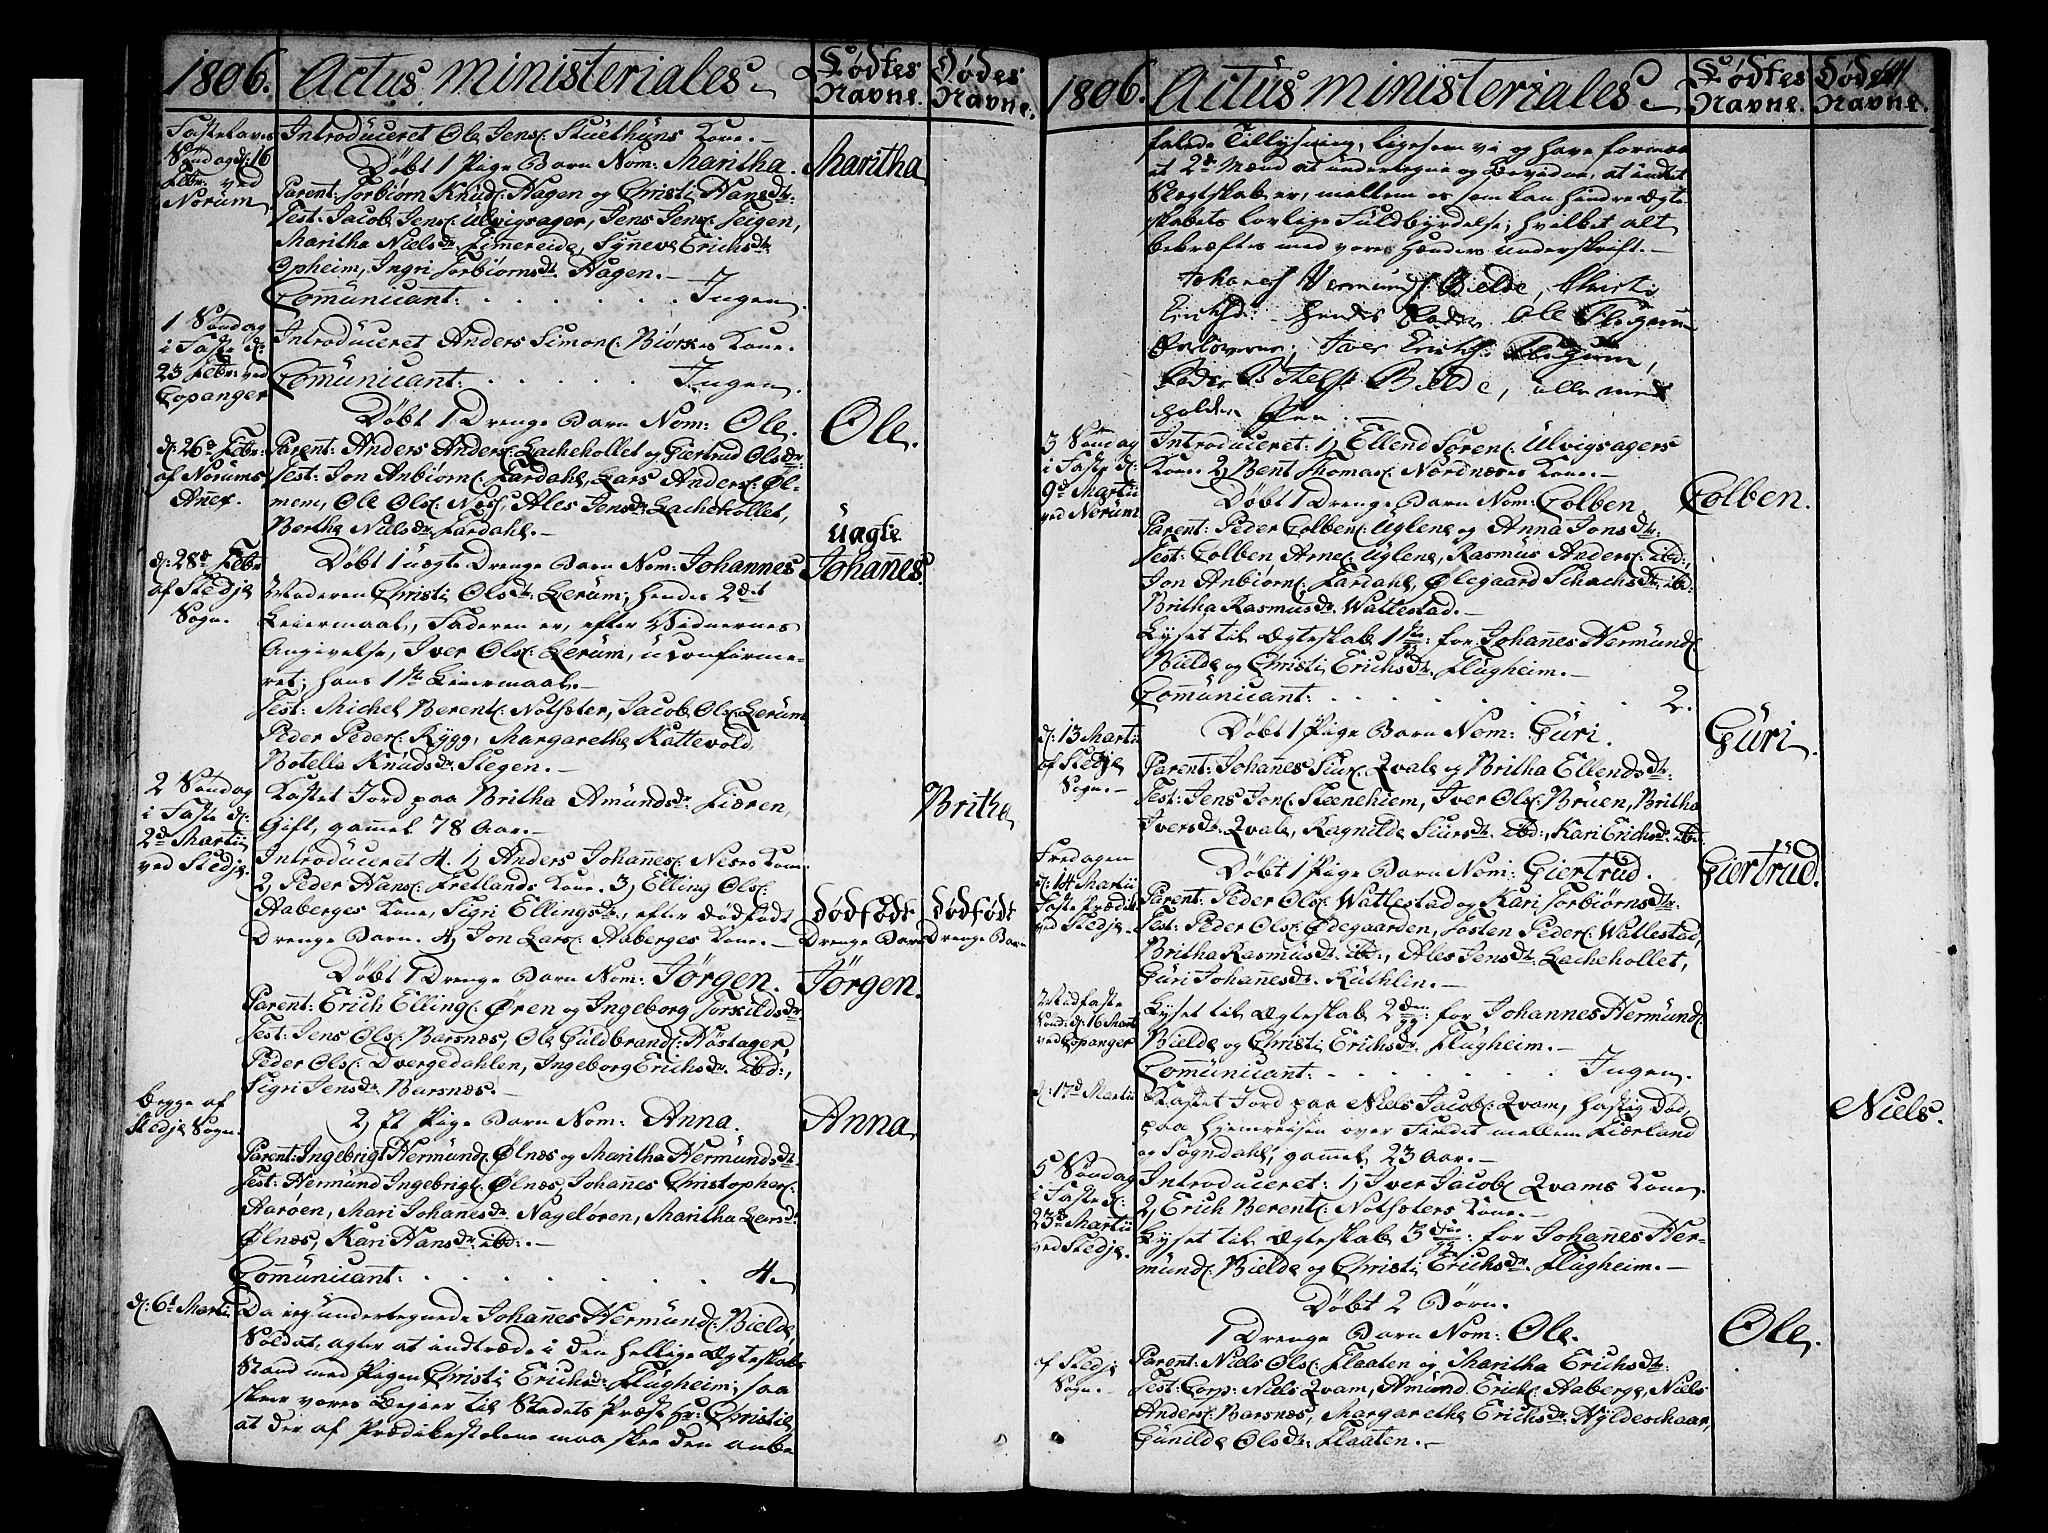 1806. Actus ministeriales. Fødtes Navne. Dødes Navne.
Fastelavns Søndag d: 16 Febr: ved Norum
Introduceret Ole Jens: Stuethuns Kone.
Døbt 1 Pige Barn Nom: Maritha. Maritha
Parent: Torbiørn Knuds: Hagen og Christi Hansdtr:
Test: Jacob Jens: Ulvigsager, Jens Jens: Teigen,
Maritha Nielsdr: Fimereide, Synneve Erichsdtr
Opheim, Ingri Torbiørnsdr: Hagen.
Communicant: . . . . . . Ingen.
1 Søndag i Faste d: 23 Febr: ved Copanger
Introduceret Anders Simons: Biørks Kone.
Communicant: . . . . . Ingen.
Døbt 1 Drenge Barn Nom: Ole. Ole.
d: 26de Febr: af Norums Anex.
Parent: Anders Anders: Lachekollet og Giertrud Olsdr:
Test: Jon Anbiørns: Fardahl, Lars Anders: Øl-
men, Ole Ols: Næs, Ales Jensdr: Lachekollet,
Berthe Nielsdr: Fardahl.
d: 28de Febr af Stedje Sogn.
Døbt 1 uægte Drenge Barn Nom: Johannes uagte Johannes
Moderen Christi Olsdr: Lerum; hendes 2det
Leiermaal, Faderen er, efter Vidnernes
Angivelse, Iver Ols: Lerum, uconfirme-
ret; hans 1ste Leiermaal.
Test: Michel Berent: Notsæter, Jacob Ols: Lerum
Peder Peders: Rygg, Margarethe Kattevold
Botella Knudsdr: Stegen.
2 Søndag i Faste d: 2d Martii ved Stedje.
Kastet Jord paa Britha Amundsdr: Fiæren, Britha
Gift, gammel 78 Aar.
Introduceret 4. 1, Anders Johannes: Neses Kone
2, Peder Hans: Fretlands Kone. 3, Elling Ols:
Aaberges Kone, Sigri Ellingsdr:, efter dødfødt dødfødt dødfødt
Drenge Barn. 4, Jon Lars: Aaberges Kone. Drenge Barn Drenge Barn
Døbt 1 Drenge Barn Nom: Jørgen. Jørgen.
Parent: Erich Elling: Øren og Ingeborg Torkildsdr
Test: Jens Ols: Barsnæs, Ole Guldbrand: Høstager,
Peder Ols: Dvergedahlen, Ingeborg Erichsdr: ibd:,
Sigri Jensdr: Barsnæs.
begge af Stedje Sogn.
2, Et Pige Barn Nom: Anna. Anna
Parent: Ingebrigt Hermund: Ølnæs og Maritha Hermundsdr
Test: Hermund Ingebrigt: Ølnæs, Johannes Christopher:
Aarøen, Mari Johannesdr: Nageløren, Maritha Larsdr
Ølnæs, Kari Hansdr: ibd:.
Communicant: . . . . . . . 4.
d: 6te Martii
Da ieg undertegnede Johannes Hermund: Bielde,
Soldat, agter at indtræde i den hellige Ægteskabs
Stand med Pigen Christi Erichsdr: Flugheim; saa
skeer vores Begiær til Stedets Præst Hr: Christie,
at der af Prædikestolene maa skee den anbe-
1806. Actus ministeriales. Fødtes Navne. Dødes Navne.
falede Tillysning, ligesom vi og have formaa
et 2de Mænd at undertegne og bevidne, at intet
Slegtskab er, mellem os som kan hindre Ægte
skabets lovlige Fuldbyrdelse; hvilket alt
bekræftes med vores Hænders underskrift.
Johanes Hermunds: Bielde, Christi
Erichsd: hendes Fader Ole Flugeim
Forlovere; Iver Erichs: Flugeim,
Peder Botels: Bielde, alle med
holden Pen.
3 Søndag i Faste d: 9d Martii ved Norum
Introduceret: 1, Ellend Søren: Ulvigsagers
Kone. 2, Bent Thomas: Nordnæses Kone.
Døbt 1 Drenge Barn Nom: Colben. Colben.
Parent: Peder Colben: Uglene og Anna Jonsdtr:
Test: Colben Arne: Uglene, Rasmus Anders: ibd:,
Jon Anbiørn: Fardahl, Ølegaard Schachsdtr: ibd:
Britha Rasmusdr: Wattestad.
Lyset til Ægteskab 1ste gg: for Johannes Hermund:
Bielde og Christi Erichsdr: Flugheim.
Communicant: . . . . . . . 2.
d: 13 Martii af Stedje Sogn.
Døbt 1 Pige Barn Nom: Guri. Guri.
Parent: Johannes Siur: Qvale og Britha Ellendsdtr:
Test: Jens Jon: Steenehiem, Iver Ols: Bruen, Britha
Iversdtr: Qvale, Ragnilde Siursdtr: ibd:, Kari Erichsdr: ibd
Fredagen d: 14 Martii Faste Prædik ved Stedje.
Døbt 1 Pige Barn Nom: Giertrud. Giertrud.
Parent: Peder Ols: Wattestad og Kari Torbiørnsdtr:
Test: Peder Ols: Ødegaarden, Tosten Peder: Wattestad,
Britha Rasmusdr: ibd:, Ales Jensdr: Lachekollet,
Guri Johannesdr: Kuthlin.
Midfaste Sønd: d: 16 Mart ved Copanger
Lyset til Ægteskab 2den gg: for Johannes Hermund:
Bielde og Christi Erichsdr: Flugheim.
Communicant: . . . . . . . Ingen.
d: 17d Martii
Kastet Jord paa Niels Jacob: Qvam, hastig død, Niels.
paa hjemreisen over Fieldet mellem Fiærland
og Sogndahl, gammel 23 Aar.
5 Søndag i Faste d: 23de Martii ved Stedje.
Introduceret: 1, Iver Jacob: Qvams Kone.
2, Erich Berent: Notsæters Kone.
Lyset til Ægteskab 3die gg: for Johannes Her-
mund: Bielde og Christi Erichsdr: Flugheim.
Døbt 2 Børn.
1 Drenge Barn Nom: Ole. Ole.
af Stedje Sogn.
Parent: Niels Ols: Flaaten og Maritha Erichsdtr:
Test: Corp: Niels Qvam, Amund Erich: Aaberge, Niels
Anders: Barsnæs, Margarethe Erichsdr: Hyldeschaar,
Gunilde Olsdtr: Flaaten.